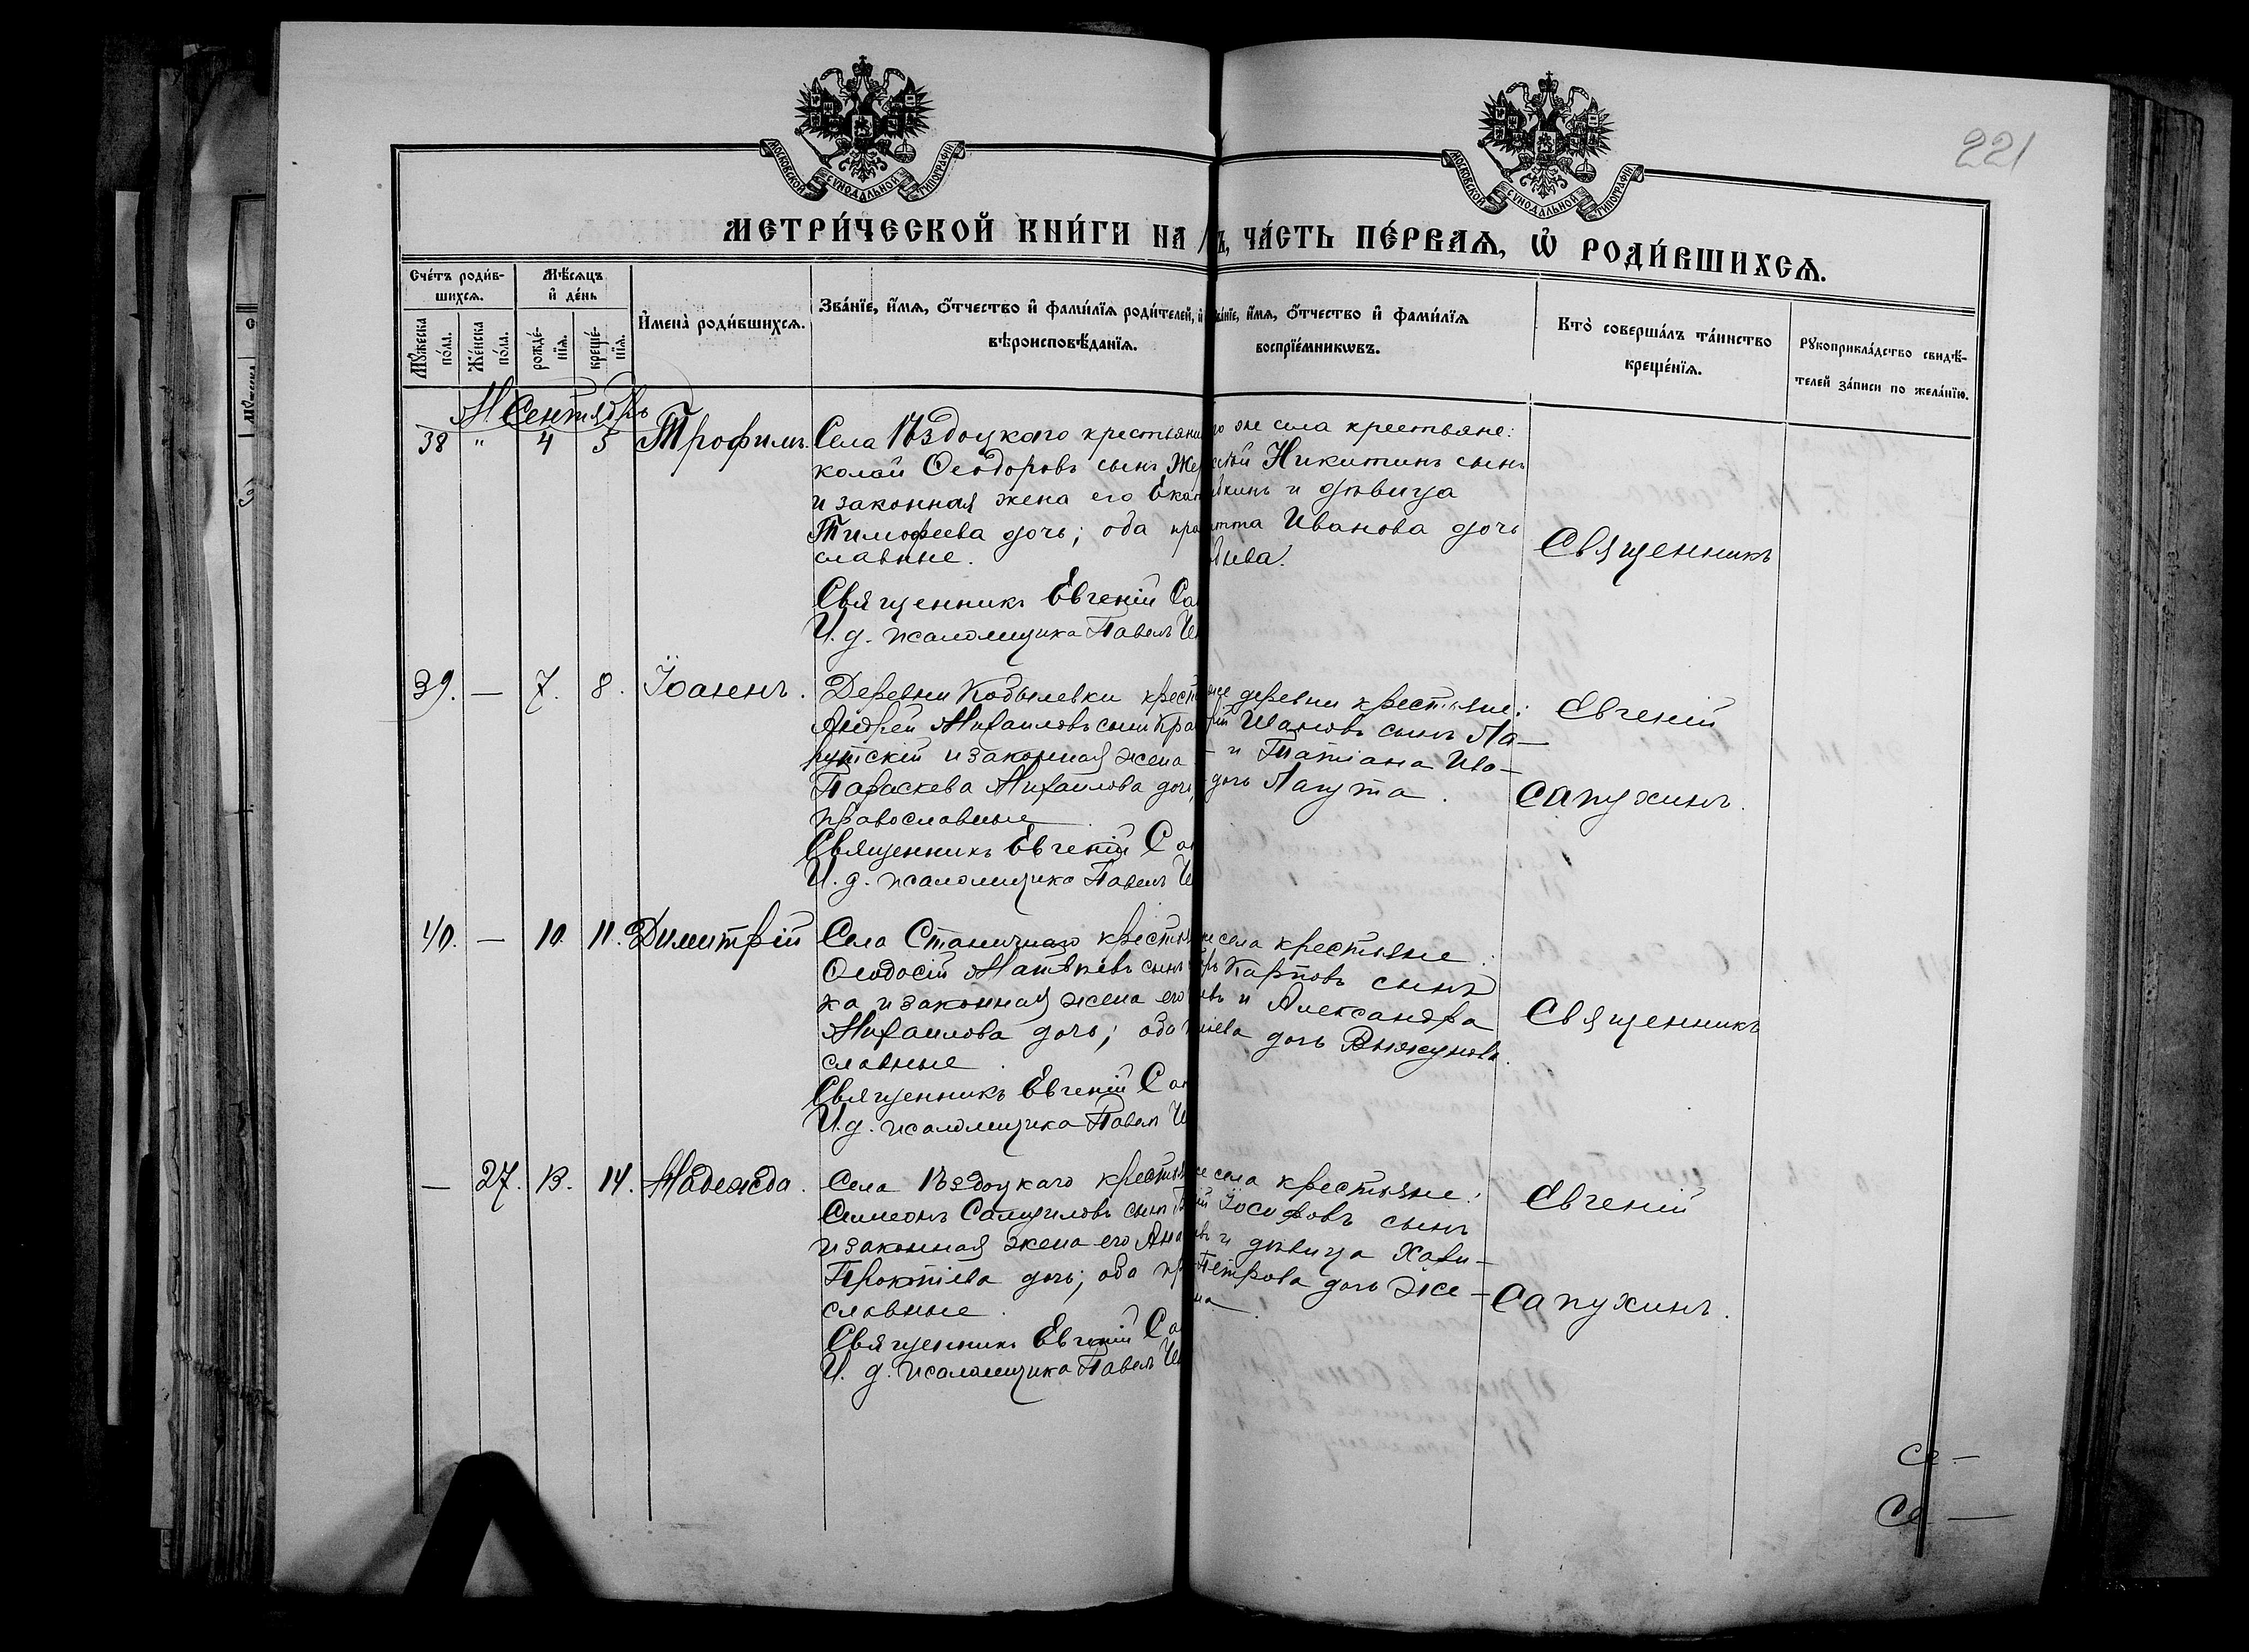 221
МОСКОВСКОЙ СУНОДАЛЬНОЙ ТИПОГРАФІИ
МОСКОВСКОЙ СУНОДАЛЬНОЙ ТИПОГРАФІИ
МЕТРИ́ЧЕСКОЙ КНИ́ГИ НА
ЧА́СТЬ ПЕ́РВАѦ, Ѡ҆ РОДИ́ВШИХСѦ.
Сче́тъ роди́в-
шихсѧ.
Мѣ́сѧцъ
и҆ де́нь
Мꙋ́жеска
по́ла.
Же́нска
по́ла.
рожде́-
нїѧ.
креще́-
нїѧ.
И҆мена̀ роди́вшихсѧ.
Зва́нїе, и҆́мѧ, ѻ҆́тчество и҆ фами́лїѧ роди́телей, и҆
вѣроисповѣ́данїѧ.
и҆́мѧ, ѻ҆́тчество и҆ фами́лїѧ
воспрїе́мникѡвъ.
Кто̀ соверша́лъ та́инство
креще́нїѧ.
Рꙋкоприкла́дство свидѣ́-
телей за́писи по жела́нїю.
М. Сентябрь
38 " 4 5 Трофимъ. Села Ѣздоцкаго крестьяни
колай Ѳеодоровъ сынъ Же
и законная жена его Ека
Тимофеева дочь; оба пра
славные.
Священникъ Евгеній Са
И. д. псаломщика Павелъ
же села крестьяне:
Никитинъ сынъ
и дѣвица
Иванова дочь
Священникъ
39. — 7. 8. Іоаннъ. Деревни Кобылевки крест
Андрей Михаиловъ сынъ Кра
скій и законная жена
Параскева Михаилова дочь,
православные
Священникъ Евгеній Са
И. д. псаломщика Павелъ
же деревни крестьяне:
Ивановъ сынъ Ла—
— и Татіана Ива—
дочь Лагута.
Евгеній
Сапухинъ.
40. — 10. 11. Димитрій Села Станичнаго крестья
Ѳеодосій Матѳѣевъ сынъ
ка и законная жена его
Михаилова дочь; оба
славные.
Священникъ Евгеній Са
И. д. псаломщика Павелъ
села крестьяне:
Карповъ сынъ
и Александра
дочь
Священникъ
— 27. 13. 14. Надежда. Села Ѣздоцкаго крестья
Симеонъ сынъ
и законная жена его Ана
Прокопіева дочь; оба пр
славные.
Священникъ Евгеній Са
И. д. псаломщика Павелъ
села крестьяне:
Іосифовъ сынъ
и дѣвица
Петрова дочь Же—
на
Евгеній
Сапухинъ.
Се —
Се —